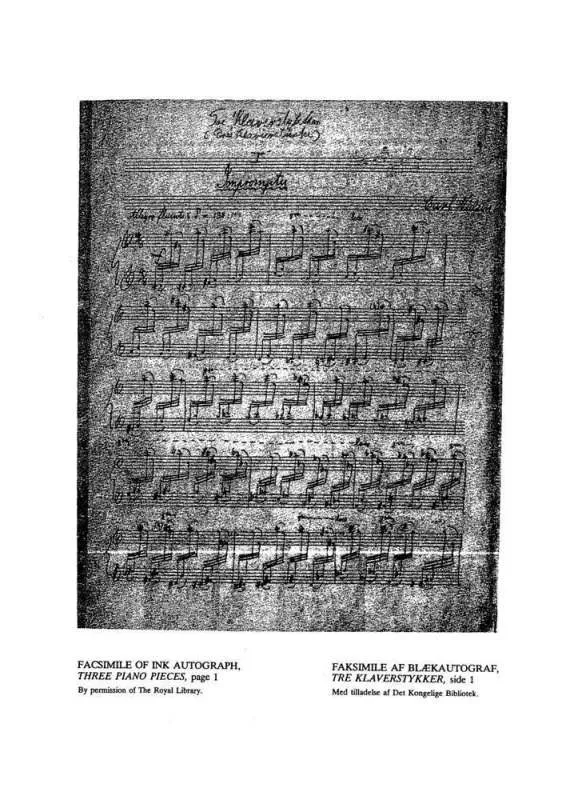 Tre Klaverstykker
I
Impromptu
Carl Nielsen
Allegro fluente
FACSIMILE OF INK AUTOGRAPH,
THREE PIANO PIECES, page 1
By permission of The Royal Library.
FAKSIMILE AF BLÆKAUTOGRAF,
TRE KLAVERSTYKKER, side 1
Med tilladelse af Det Kongelige Bibliotek.